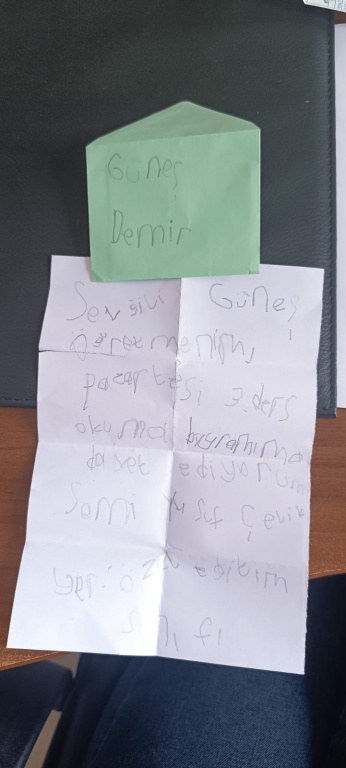 Güneş
Demir
Sevgili Güneş
öğretmenim,
pazartesi 3.ders
okuma bayramıma
davet ediyorum
Sami Yusuf Çevik
yer: öz
sınıfı